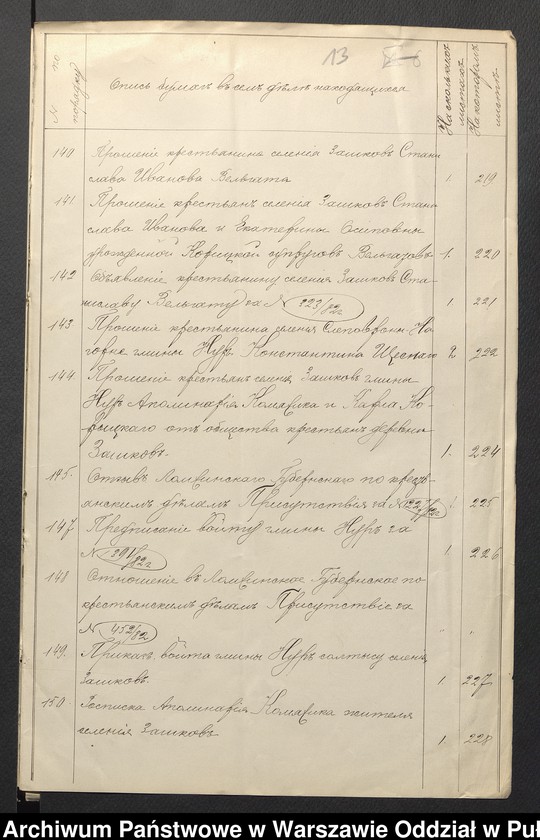 13
№ по порядку
Опись бумагъ въ семъ дѣлѣ находящихся
На сколькихъ листахъ
На которомъ листѣ
140 Прошеніе крестьянина селенія Зашковъ Стани
слава Иванова Вельгата 1. 219
141 Прошеніе крестьянъ селенія Зашковъ Стани
слава Иванова и Екатерины Осиповны
урожденной супруговъ 1. 220
142 Объявленіе крестьянину селенія Зашковъ Ста-
ниславу Вельгату за № 323/82г 1 221
143 Прошеніе крестьянина селенія На-
горне гмины Нуръ Константина Щеснаго 2 222
144 Прошеніе крестьянъ селенія Зашковъ гмины
Нуръ Аполинарія Комарика и
отъ общества крестьянъ деревни
Зашковъ. 1. 224
145. Отзывъ Ломжинскаго Губернскаго по кресть-
янскимъ дѣламъ Присутствія за № 1 225
147 Предписаніе войту гмины Нуръ за
№ 391/82г 1 226
148 Отношеніе въ Ломжинское Губернское по
крестьянскимъ дѣламъ Присутствіе за
№ 452/82
149. Приказъ войта гмины Нуръ солтысу селенія
Зашковъ. 1. 227
150 Росписка Аполинарія Комарика жителя
селенія Зашковъ 1 228
Archiwum Państwowe w Warszawie Oddział w Puł